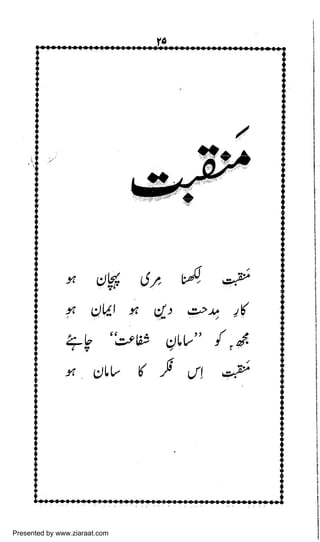 ۲۵
مَنقبت
مَنقبت لِکھنا مِری پہچان ہو
کارِ مِدحت دین ہو ایمان ہو
مجھ کو ”سامانِ شفاعت“ چاہئے
مَنقبت اِس فکر کا سامان ہو
Presented by www.ziaraat.com